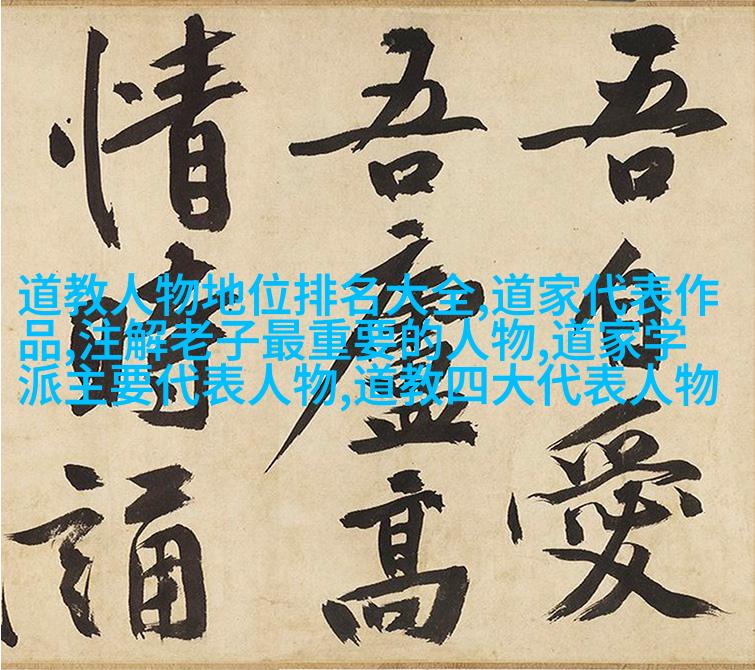 吾自愛
吾廬高
情誦
道教人物地位排名大全,道家代表作
品,注解老子最重要的人物,道家学
派主要代表人物,道教四大代表人物